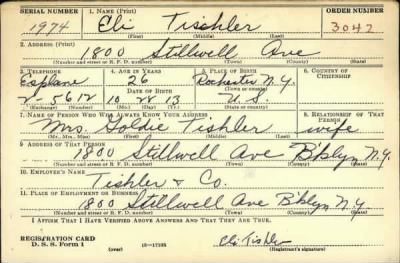 SERIAL NUMBER 1. NAME (Print) ORDER NUMBER
1974 Eli Tishler 3047
(First) (Middle) (Last)
2. ADDRESS (Print)
1800 Stillwell Ave
(Number and street or R. F. D. number) (Town) (County) (State)
3. TELEPHONE 4. AGE IN YEARS 5. PLACE OF BIRTH 6. COUNTRY OF CITIZENSHIP
Esplane 26 Rochester N.Y.
DATE OF BIRTH (Town) (County)
2 5612 10 28 13 U.S.
(Exchange) (Number) (Mo.) (Day) (Yr.) (State or country)
7. NAME OF PERSON WHO WILL ALWAYS KNOW YOUR ADDRESS 8. RELATIONSHIP OF THAT PERSON
Mrs. Goldie Tishler wife
(Mr., Mrs., Miss) (First) (Middle) (Last)
9. ADDRESS OF THAT PERSON
1800 Stillwell Ave B'klyn N.Y.
(Number and street or R. F. D. number) (Town) (County) (State)
10. EMPLOYER'S NAME
Tishler & Co.
11. PLACE OF EMPLOYMENT OR BUSINESS
1800 Stillwell Ave B'klyn N.Y.
(Number and street or R. F. D. number) (Town) (County) (State)
I AFFIRM THAT I HAVE VERIFIED ABOVE ANSWERS AND THAT THEY ARE TRUE.
REGISTRATION CARD
D. S. S. Form 1 (over) 16—17105 Eli Tishler
(Registrant's signature)